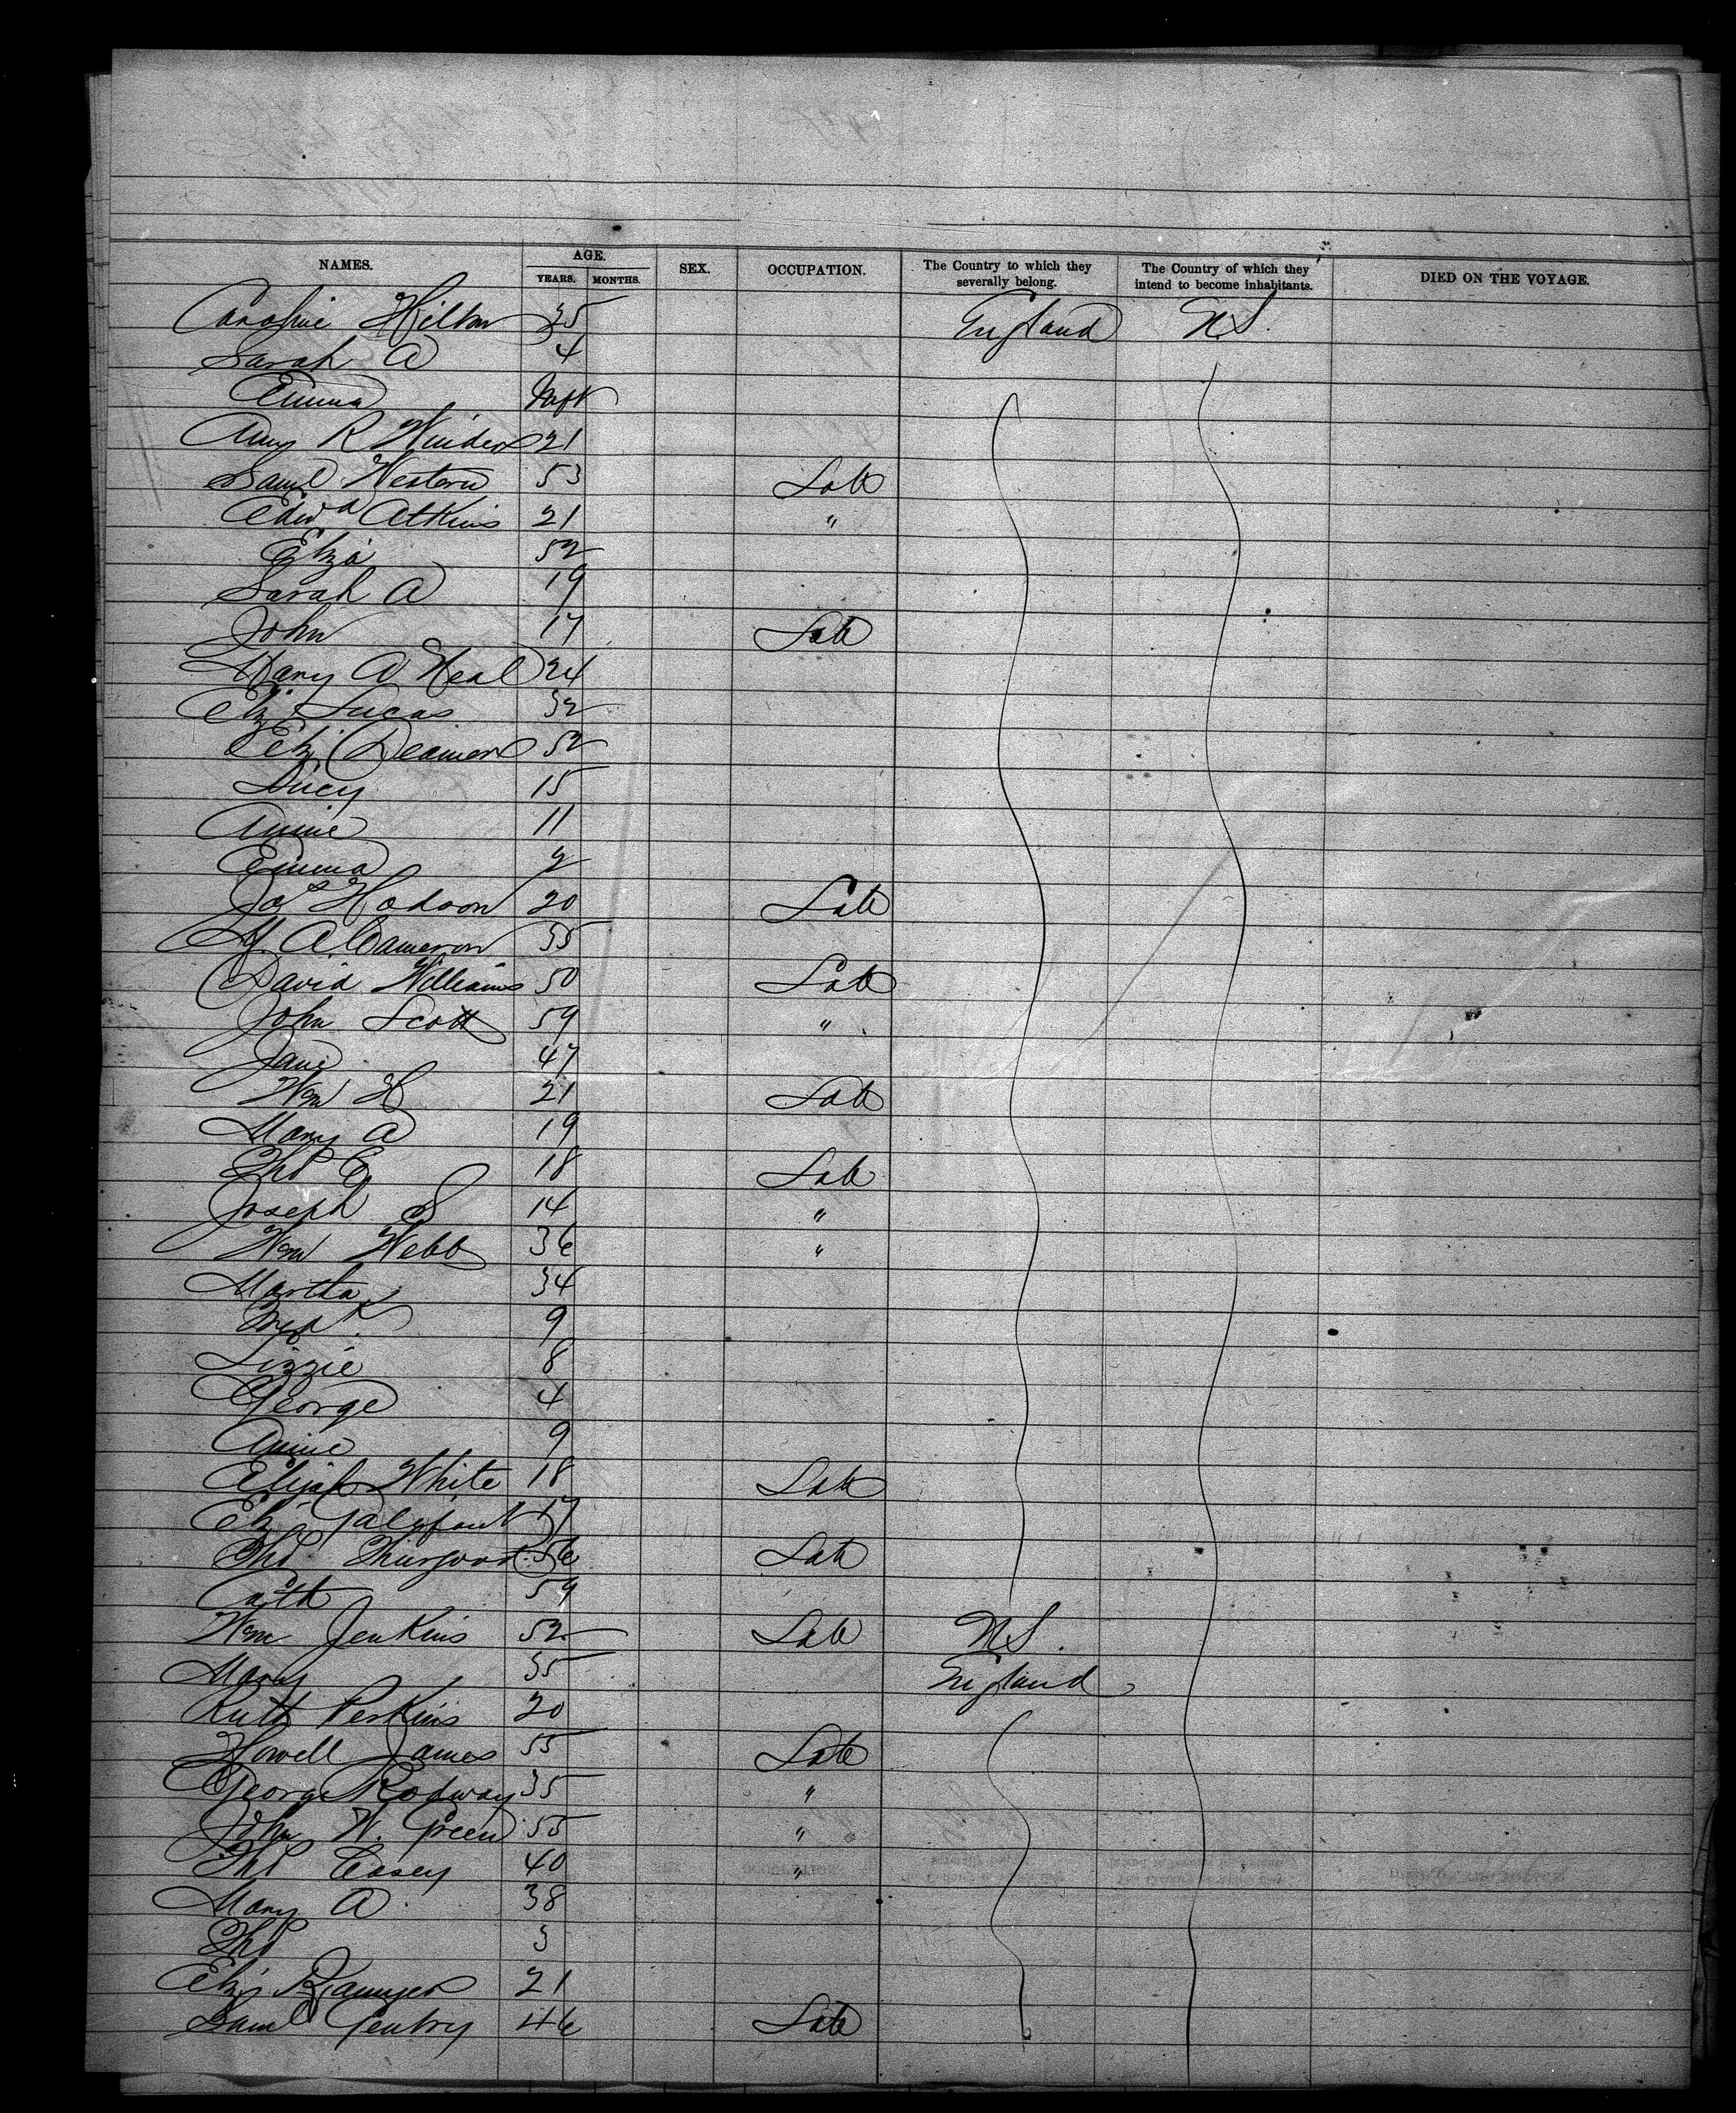 NAMES. AGE. YEARS. MONTHS. SEX. OCCUPATION. The Country to which they severally belong. The Country of which they intend to become inhabitants. DIED ON THE VOYAGE.
Caroline Hilton 35 England US.
Sarah A 4
Emma Inft
Amy R 21
Saml Western 53 Lab
Edwd Atkins 21 "
Eliza 52
Sarah A 19
John 17 Lab
Mary A Neal 24
Eliz Lucas 32
Eliz Deamer 52
Lucy 15
Annie 11
Emma 9
Jos Hodson 20 Lab
M A Cameron 35
David Williams 50 Lab
John Scott 59 "
Jane 47
Wm H 21 Lab
Mary A 19
Thos E 18 Lab
Joseph S 14 "
Wm Webb 36 "
Martha 34
Fredk 9
Lizzie 8
George 4
Annie 9
Elijah White 18 Lab
Eliz 17
Thos Thurgood 56 Lab
Cath 59
Wm Jenkins 52 Lab US.
Mary 35 England
Ruth Perkins 20
Howell James 55 Lab
George Rodway 35 "
John W. Green 55 "
Thos Casey 40 "
Mary A 38
Thos 3
Eliz 21
Saml Gentry 46 Lab